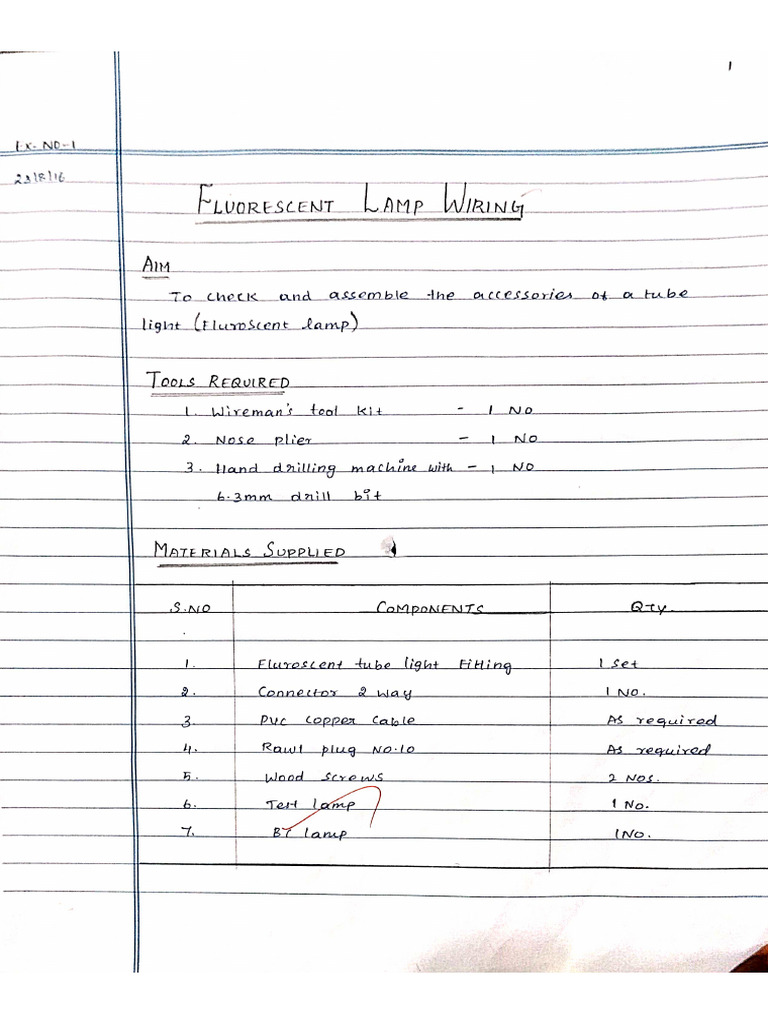 1
Ex-NO-1
23/8/16
FLUORESCENT LAMP WIRING
AIM
To check and assemble the accessories of a tube
light (Fluroscent lamp)
TOOLS REQUIRED
1. Wireman's tool kit - 1 NO
2. Nose plier - 1 NO
3. Hand drilling machine with - 1 NO
6.3mm drill bit
MATERIALS SUPPLIED
S.NO COMPONENTS QTY.
1. Fluroscent tube light Fitting 1 set
2. Connector 2 way 1 NO.
3. PVC copper cable As required
4. Rawl plug NO.10 As required
5. Wood screws 2 Nos.
6. Test lamp 1 No.
7. BT lamp 1NO.